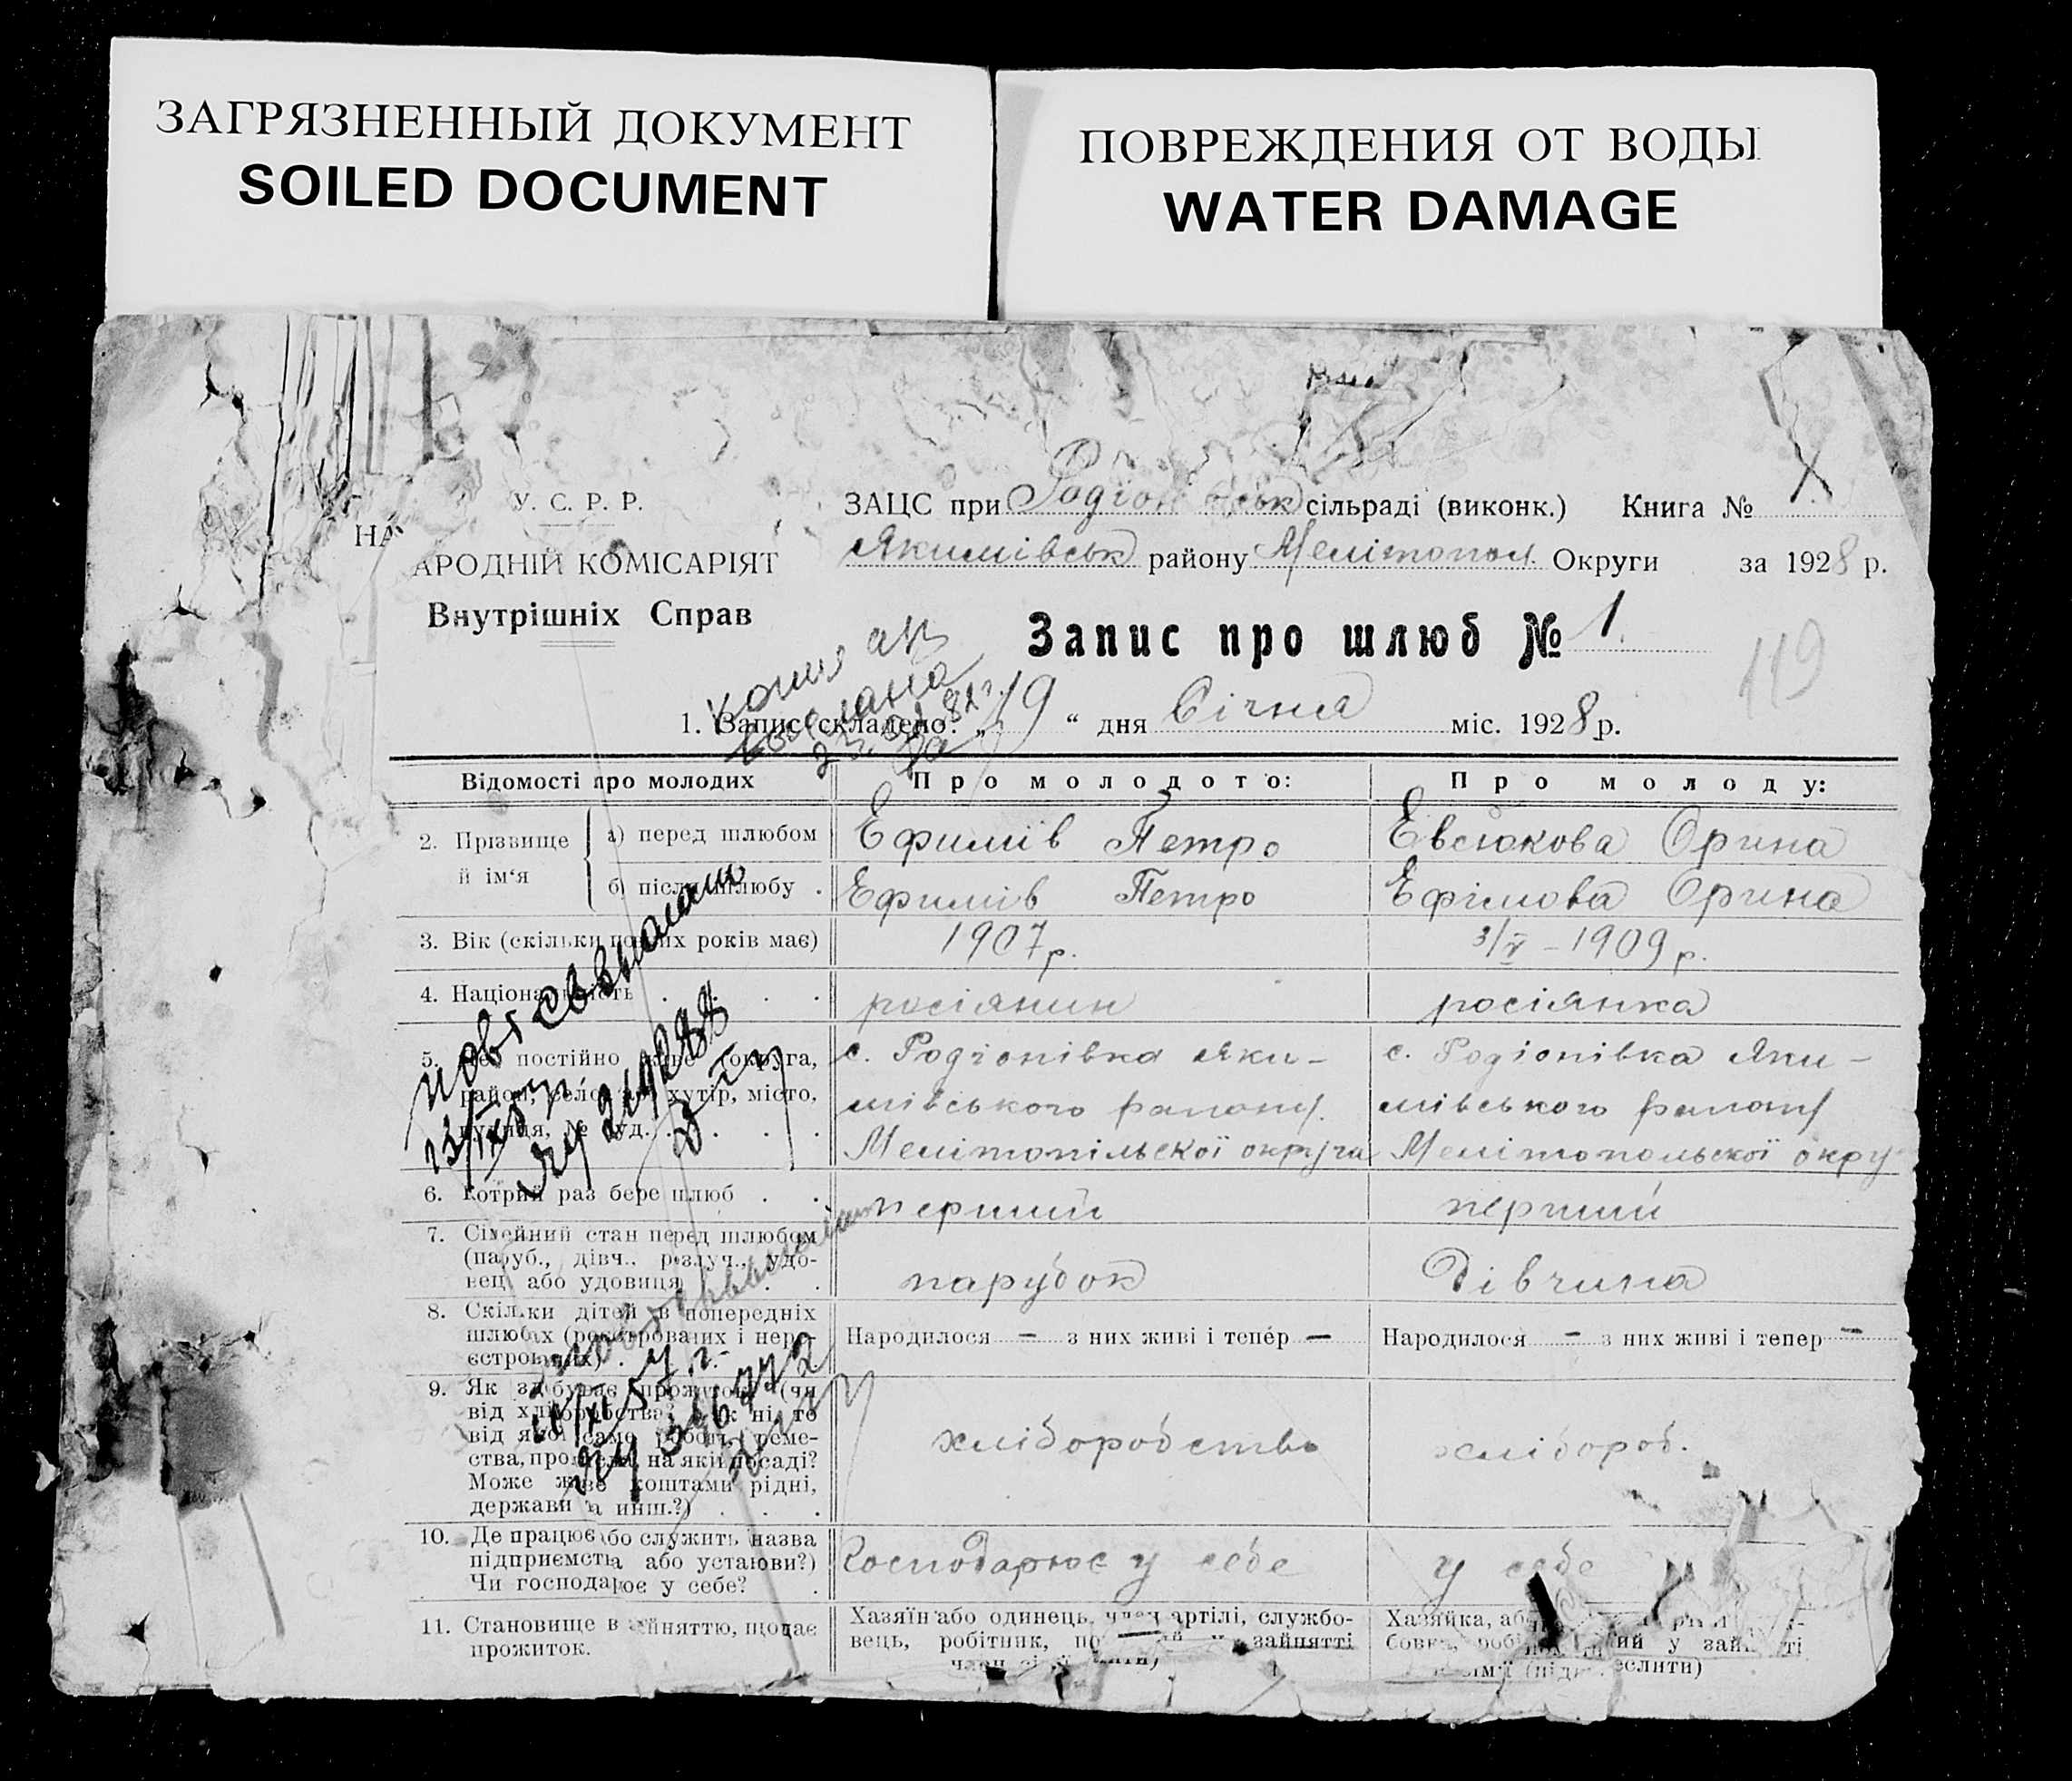 ЗАГРЯЗНЕННЫЙ ДОКУМЕНТ
SOILED DOCUMENT
ПОВРЕЖДЕНИЯ ОТ ВОДЫ
WATER DAMAGE
У. С. Р. Р.
НАРОДНІЙ КОМІСАРІЯТ
Внутрішніх Справ
ЗАЦС при Родіон івськ сільраді (виконк.) Книга №
Якимівськ району Мелітопол. Округи за 1928 р.
Запис про шлюб № 1.
119
копия ав
выслана
1. Запис складено: „19“ дня Січня міс. 1928 р.
Відомості про молодих
Про молодого:
Про молоду:
2. Прізвище й ім‘я
а) перед шлюбом
Ефимів Петро
Евсюкова Орина
б) після шлюбу .
Ефимів Петро
Ефімова Орина
3. Вік (скільки повних років має)
1907 р.
3/V – 1909 р.
4. Національність . . . .
росіянин
росіянка
5. Де постійно живе (округа,
район, село або хутір, місто,
вулиця, № буд. . . . .
с. Родіонівка Яки–
мівського району.
Мелітопільскої округи
с. Родіонівка Яки–
мівського району
Мелітопольскої окру
6. Котрий раз бере шлюб . .
перший
перший
7. Сімейний стан перед шлюбом
(паруб., дівч., розлуч., удо-
вец або удовиця) . .
парубок
Дівчина
8. Скільки дітей в попередніх
шлюбах (реєстрованих і нере-
єстрованих) . . .
Народилося – з них живі і тепер –
Народилося – з них живі і тепер –
9. Як здобуває прожиток (чи
від хліборобства? Як ні, то
від якої саме роботи, реме-
ства, промисла, на якій посаді?
Може живе коштами рідні,
держави та инш.?) . . .
хліборобство
хлібороб.
10. Де працює або служить назва
підприємства або установи?)
Чи господарює у себе? .
Господарює у себе
у себе
11. Становище в зайняттю, що дає
прожиток.
Хазяїн або одинець, член артілі, службо-
вець, робітник, зайнятті
Хазяйка,
у зайнятті
повт. св. высылаш
23/IX 57 г.
ЯУ 2192188
10/XI 57 г.